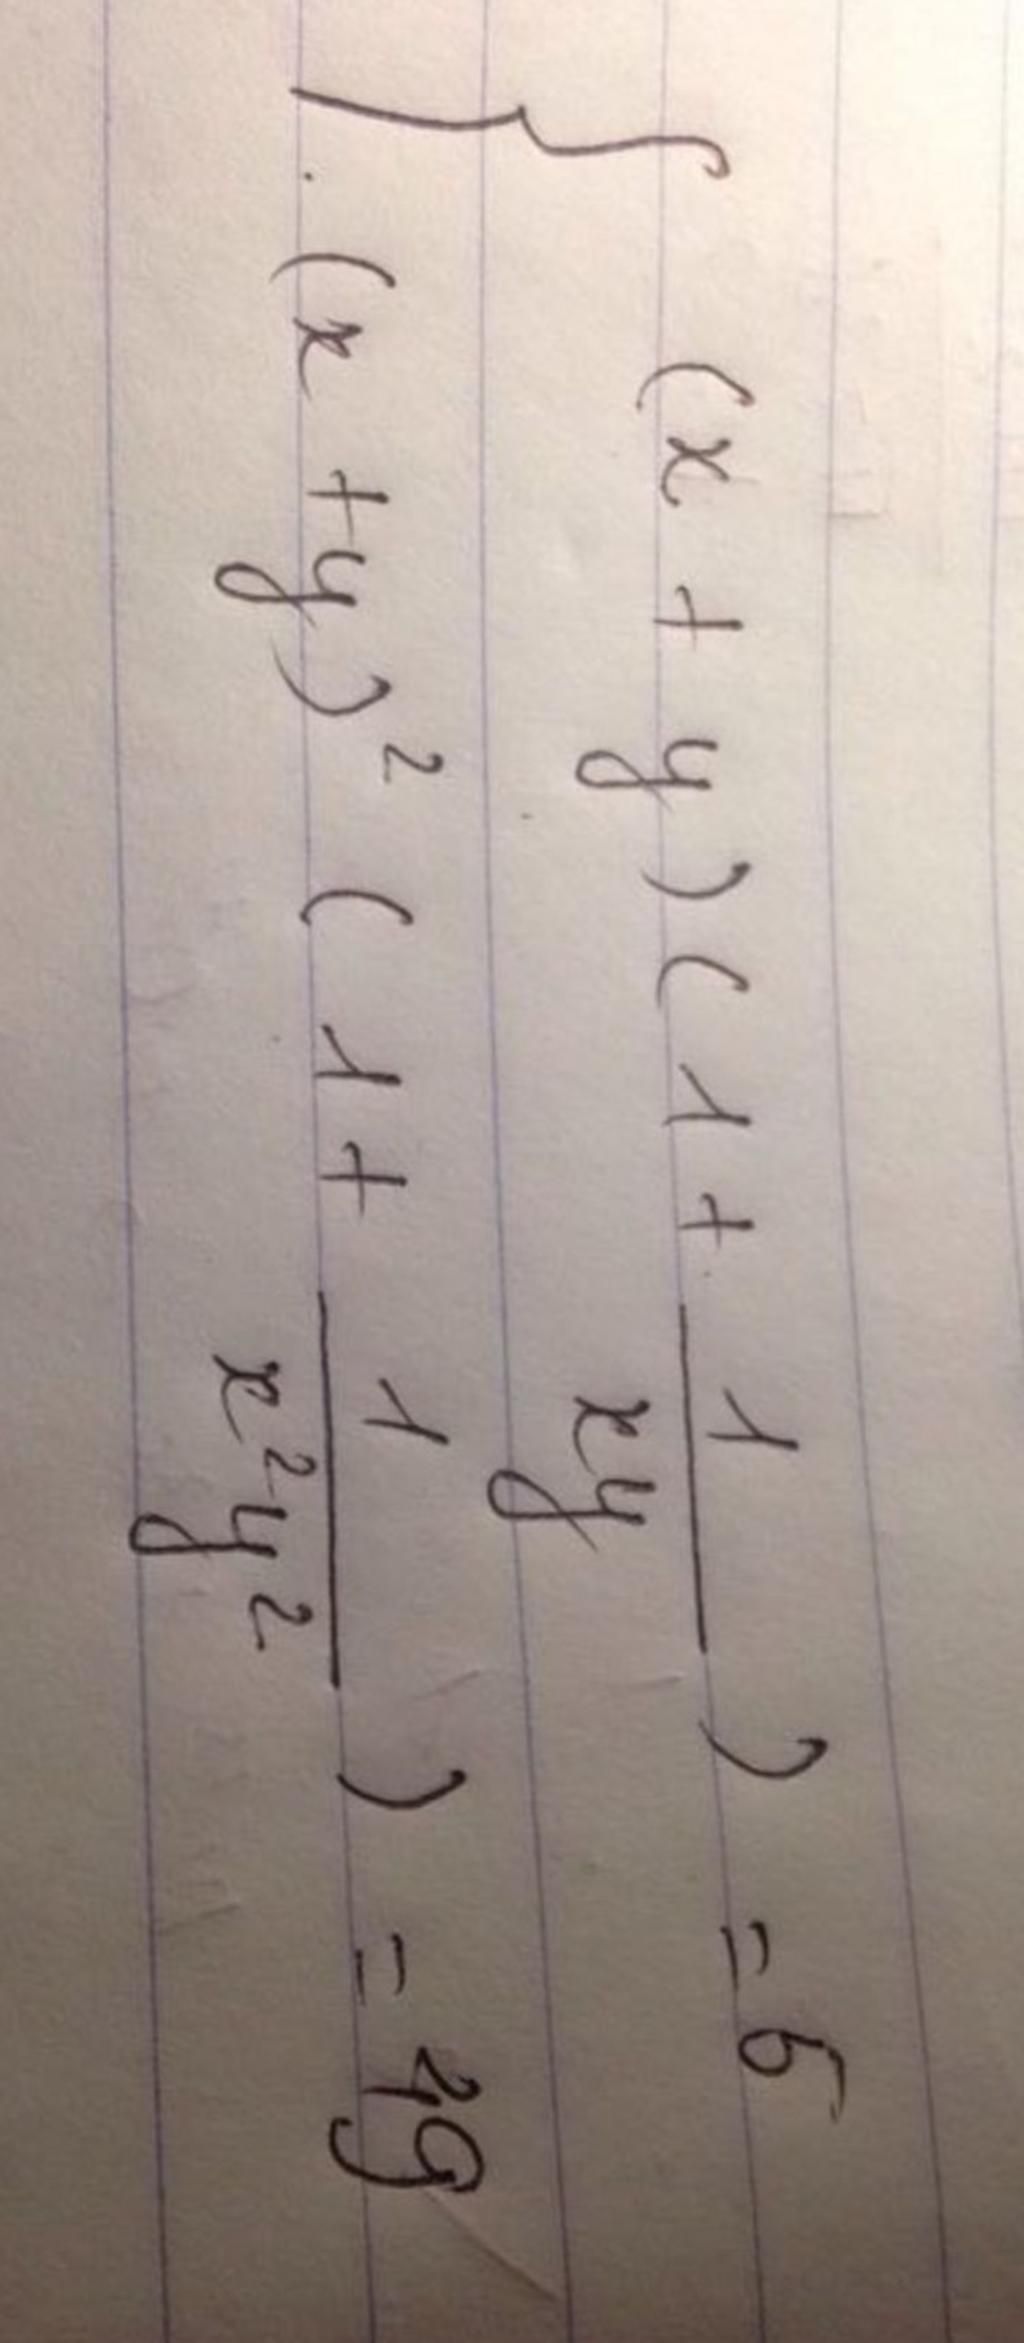 (x + y)(1 + \frac{1}{xy}) = 5
(x + y)^2 (1 + \frac{1}{x^2y^2}) = 49